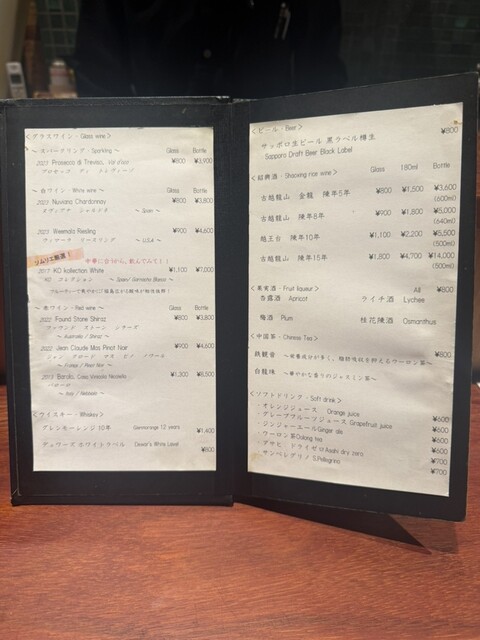 <グラスワイン・Glass wine>
～ スパークリング・Sparkling ～ Glass Bottle
2023 Prosecco di Treviso, ¥800 ¥3,900
プロセッコ ディ トレヴィーゾ
～ 白ワイン・White wine ～ Glass Bottle
2023 Nuviana Chardonnay ¥800 ¥3,800
ヌヴィアナ シャルドネ ～ Spain ～
2023 Weemala Riesling ¥900 ¥4,600
ウィマーラ リースリング ～ LOLA ～
ソムリエ厳選！
中華に合うから、飲んでみて！！
2017 KO kollection White ¥1,100 ¥7,000
KO コレクション ～ Spain/ Garnacha Blanca ～
～ 赤ワイン・Red wine ～ Glass Bottle
2022 Found Stone Shiraz ¥800 ¥3,800
ファウンド ストーン シラーズ
～ Australia / Shiraz ～
2022 Jean Claude Mas Pinot Noir ¥900 ¥4,600
ジャン クロード マス ピノ ノワール
～ France / Pinot Noir ～
2019 Barolo, ¥1,300 ¥8,500
バローロ
～ Italy / Nebbiolo ～
<ウイスキー・Whiskey>
グレンモーレンジ 10年 Glenmorangie 12 years ¥1,400
デュワーズ ホワイトラベル Dewar's White Label ¥800
<ビール・Beer>
サッポロ生ビール 黒ラベル樽生 ¥800
Sapporo Draft Beer Black Label
<紹興酒・Shaoxing rice wine> Glass 180ml Bottle
古越龍山 金龍 陳年5年 ¥800 ¥1,500 ¥3,600
(600ml)
古越龍山 陳年8年 ¥900 ¥1,800 ¥5,000
(640ml)
越王台 陳年10年 ¥1,100 ¥2,200 ¥5,500
(500ml)
古越龍山 陳年15年 ¥1,800 ¥4,700 ¥14,000
(500ml)
<果実酒・Fruit liqueur> All ¥800
杏露酒 Apricot ライチ酒 Lychee
梅酒 Plum 桂花陳酒 Osmanthus
<中国茶・Chinese Tea>
鉄観音 ～栄養成分が多く、脂肪吸収を抑えるウーロン茶～ ¥800
白龍珠 ～華やかな香りのジャスミン茶～
<ソフトドリンク・Soft drink>
・オレンジジュース Orange juice ¥600
・グレープフルーツジュース Grapefruit juice ¥600
・ジンジャーエール Ginger ale ¥600
・ウーロン茶 Oolong tea ¥600
・アサヒ ドライゼロ Asahi dry zero ¥700
・サンペレグリノ S.Pellegrino ¥700